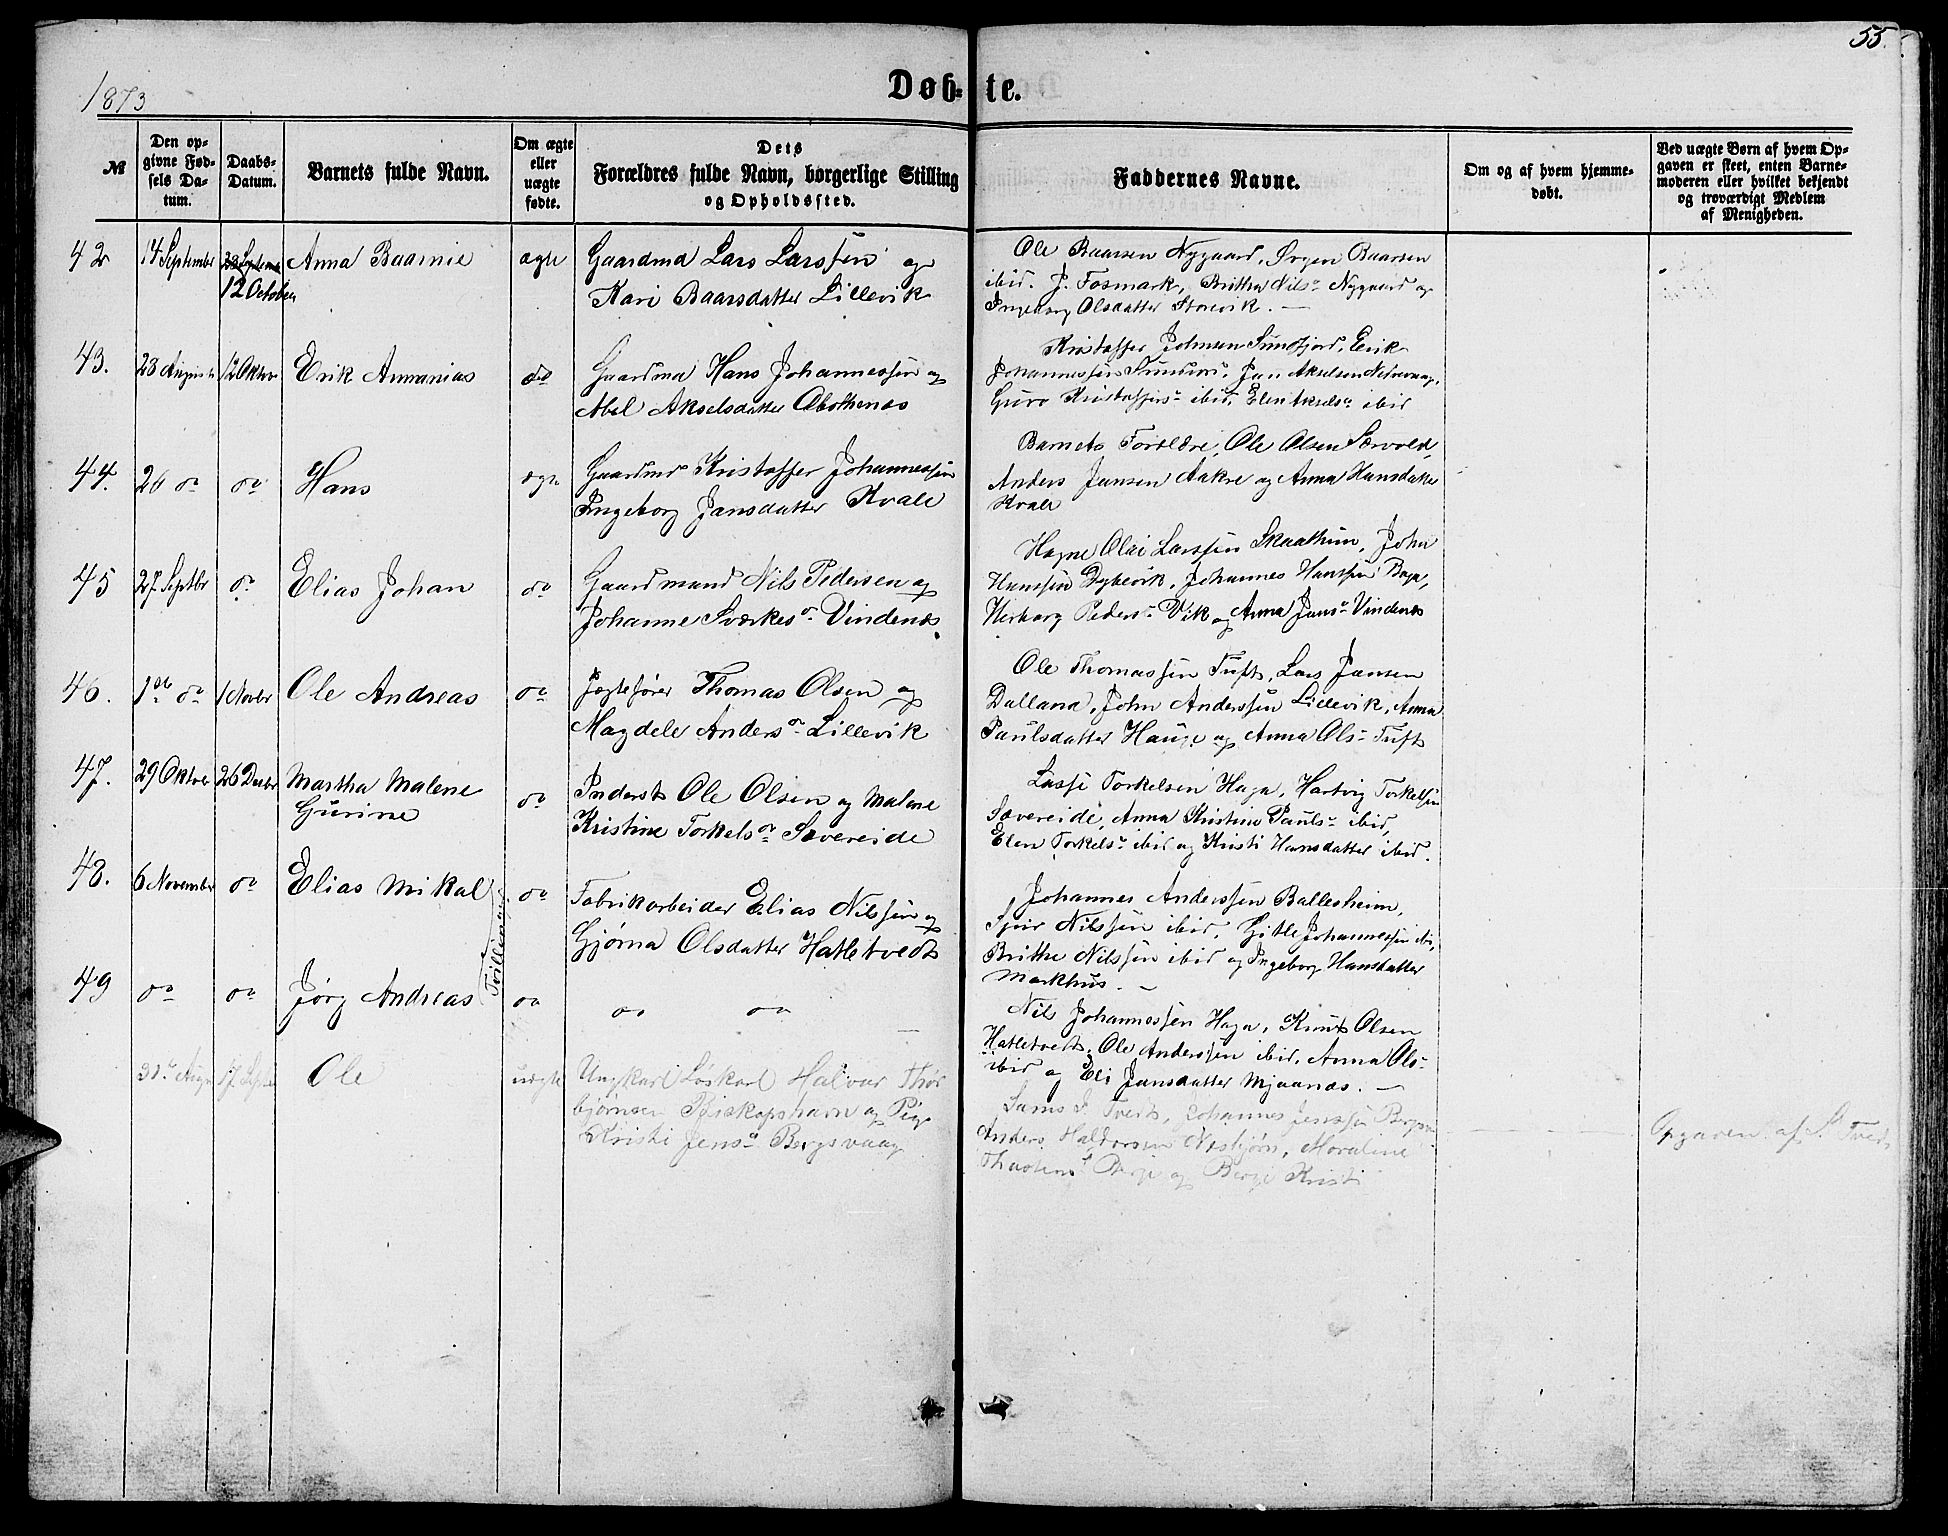 55.
1873
Døb-te.
№
Den op-
givne Fød-
sels Da-
tum.
Daabs-
Datum.
Barnets fulde Navn.
Om ægte
eller
uægte
fødte.
Dets
Forældres fulde Navn, borgerlige Stilling
og Opholdssted.
Faddernes Navne.
Om og af hvem hjemme-
døbt.
Ved uægte Børn af hvem Op-
gaven er skeet, enten Barne-
moderen eller hvilket bekjendt
og troværdigt Medlem
af Menigheden.
42 14 September 12 October Anna Baarnie ægte
Gaardmd Lars Larssen og
Kari Baarsdatter Lillevik
Ole Baarsen Nygaard, Ørgen Baarsen
ibid. J. Fosmark, Britha Nilsn Nygaard og
Ingeborg Olsdatter Storevik. —
43. 23 August 12 Oktbr Erik Annanias do
Gaardmd Hans Johannessen og
Abel Akselsdatter Abothenæs
Kristoffer Johnsen Sundfjord, Erik
Johannessen, Jan Akselsen
Guro Kristoffersn ibid, Elen Akselsn ibid
44. 26 do do Hans ægte
Gaardmd Kristoffer Johannessen
Ingeborg Jansdatter Kvale
Barnets Forældre, Ole Olsen Særvold,
Anders Jansen Aakre og Anna Hansdatter
Kvale
45 27 Septbr do Elias Johan do
Gaardmand Nils Pedersen og
Johanne Sværkesdr Vindenæs
Hagne Olai Larssen Skaathun, John
Hanssen Dybevik, Johannes Hanssen Baga,
Herborg Pedersn Vik og Anna Jansn Vindenæs
46. 1st do 1 Novbr Ole Andreas do
Jagtefører Thomas Olsen og
Magdele Andersdr Lillevik
Ole Thomassen Tuft, Lars Jansen
Dalland, John Anderssen Lillevik, Anna
Paulsdatter Hauge og Anna Olsn Tuft
47. 29 Oktber 26 Decbr Martha Malene
Gurine do
Inderst Ole Olsen og Malene
Kristine Torkelsdr Sævereide
Lasse Torkelsen Haga, Hartvig Torkelsen
Sævereide, Anna Kristine Paulsn ibid,
Elen Torkelsn ibid og Kristi Hansdatter ibid.
48. 6 November do Elias Mikal do
Tvillinger
Fabrikarbeider Elias Nilssen og
Gjørna Olsdatter Hatletvedt
Johannes Anderssen Ballesheim,
Sjur Nilssen ibid, Gitle Johannessen ibid,
Brithe Nilssen ibid og Ingeborg Hansdatter
Markhus. —
49 do do Jørg Andreas do
do do
Nils Johannessen Haga, Knut Olsen
Hatletvedt, Ole Anderssen ibid, Anna Ols-
ibid og Eli Jansdatter Mjaanæs. —
31te Augu 17 Septe Ole uægte
Ungkarl Løskarl Halvar Thor
bjørnsen Biskopshavn og Pige
Kristi Jensdr Bergsvaag
Tvedt, Johannes Jenssen
Anders Haldorsen Nesbjørn,
Berge og Berge Kristi
Opgaven af S. Tvedt